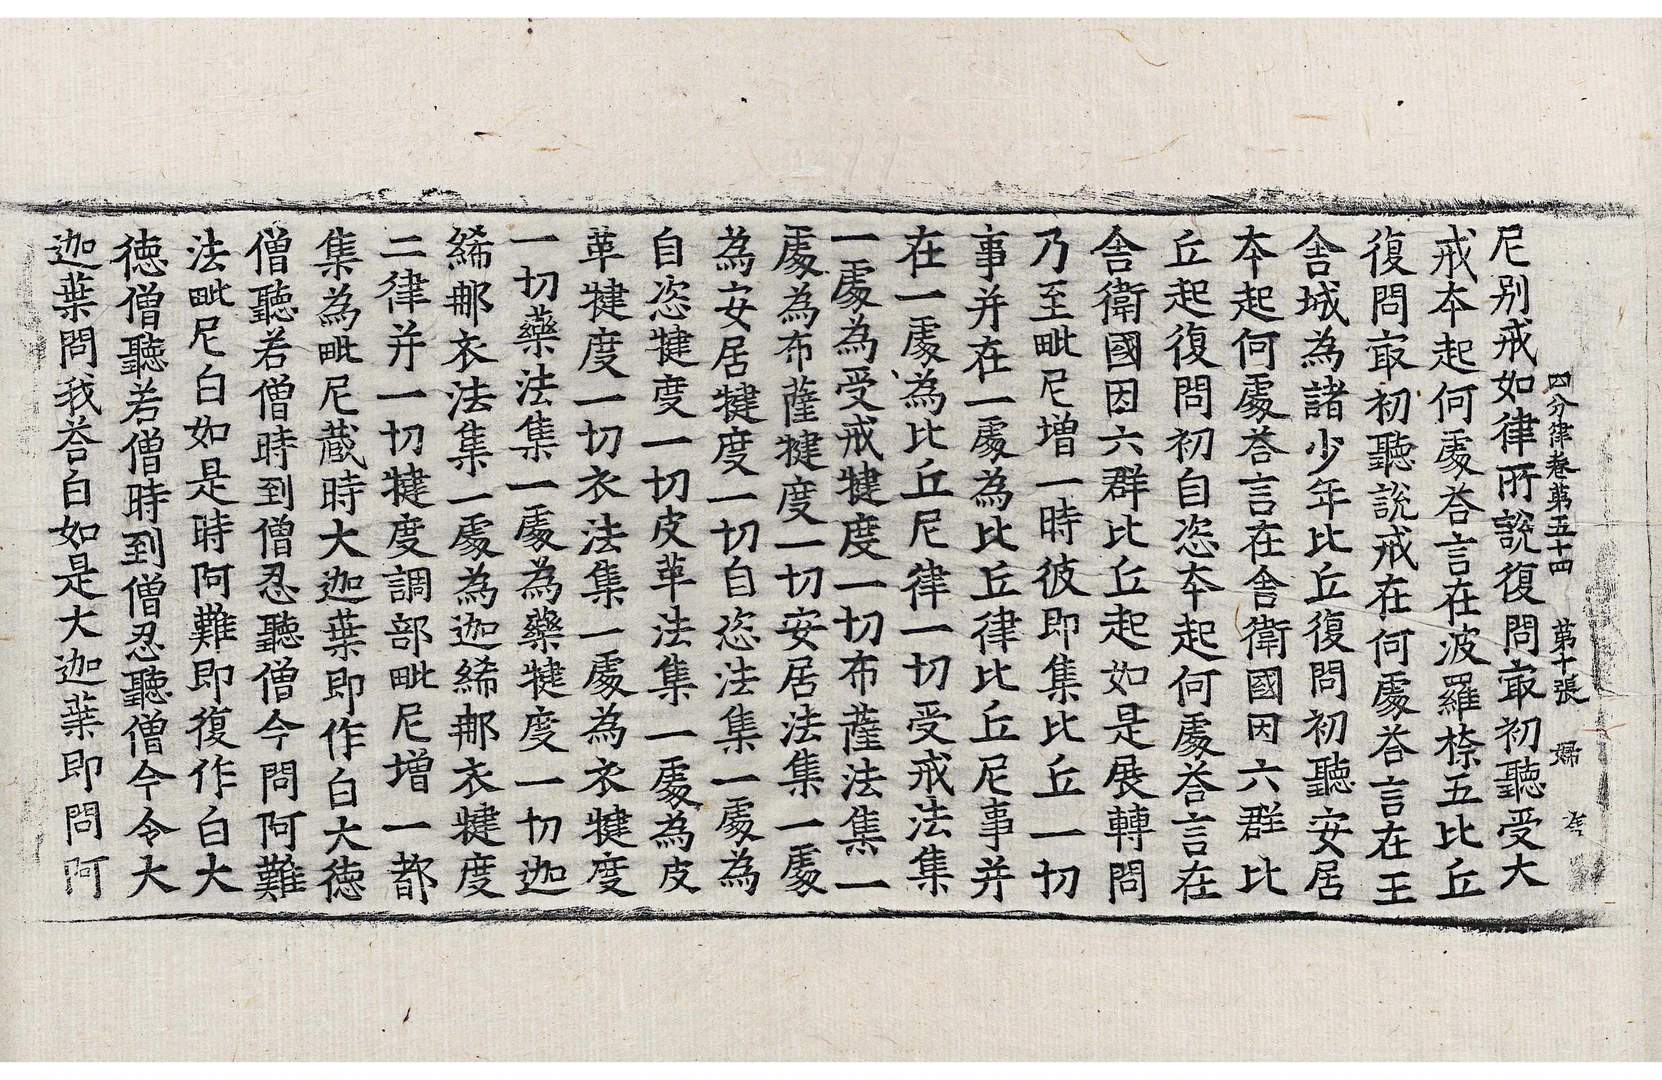 四分律卷第五十四 第十張 婦
尼別戒如律所說復問㝡初聽受大
戒本起何處荅言在波羅㮈五比丘
復問㝡初聽說戒在何處荅言在王
舍城為諸少年比丘復問初聽安居
本起何處荅言在舍衛國因六群比
丘起復問初自恣本起何處荅言在
舍衛國因六群比丘起如是展轉問
乃至毗尼增一時彼即集比丘一切
事并在一處為比丘律比丘尼事并
在一處為比丘尼律一切受戒法集
一處為受戒犍度一切布薩法集一
處為布薩犍度一切安居法集一處
為安居犍度一切自恣法集一處為
自恣犍度一切皮革法集一處為皮
革犍度一切衣法集一處為衣犍度
一切藥法集一處為藥犍度一切迦
絺那衣法集一處為迦絺那衣犍度
二律并一切犍度調部毗尼增一都
集為毗尼藏時大迦葉即作白大德
僧聽若僧時到僧忍聽僧今問阿難
法毗尼白如是時阿難即復作白大
德僧聽若僧時到僧忍聽僧今令大
迦葉問我荅白如是大迦葉即問阿